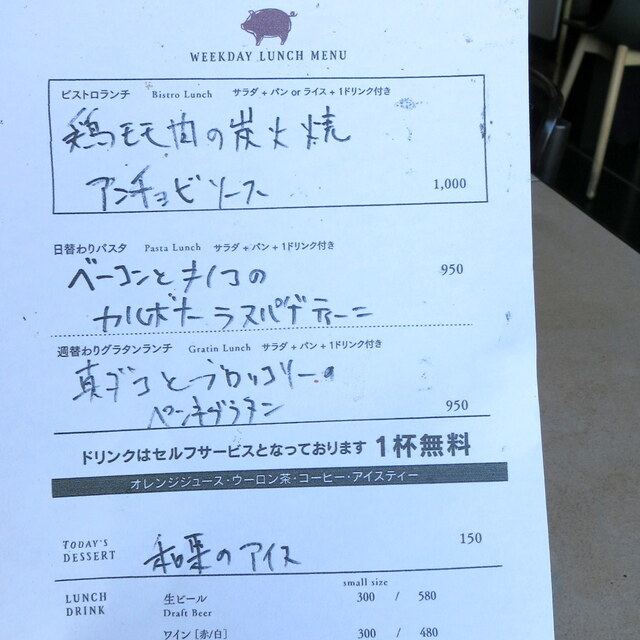 WEEKDAY LUNCH MENU
ビストロランチ Bistro Lunch サラダ + パン or ライス + 1ドリンク付き
鶏モモ肉の炭火焼
アンチョビソース 1,000
日替わりパスタ Pasta Lunch サラダ + パン + 1ドリンク付き
ベーコンとキノコの 950
カルボナーラスパゲティーニ
週替わりグラタンランチ Gratin Lunch サラダ + パン + 1ドリンク付き
真ダコとブロッコリーの
ペンネグラタン 950
ドリンクはセルフサービスとなっております 1杯無料
オレンジジュース・ウーロン茶・コーヒー・アイスティー
TODAY'S DESSERT 和栗のアイス 150
small size
LUNCH DRINK 生ビール 300 / 580
Draft Beer
ワイン [赤/白] 300 / 480